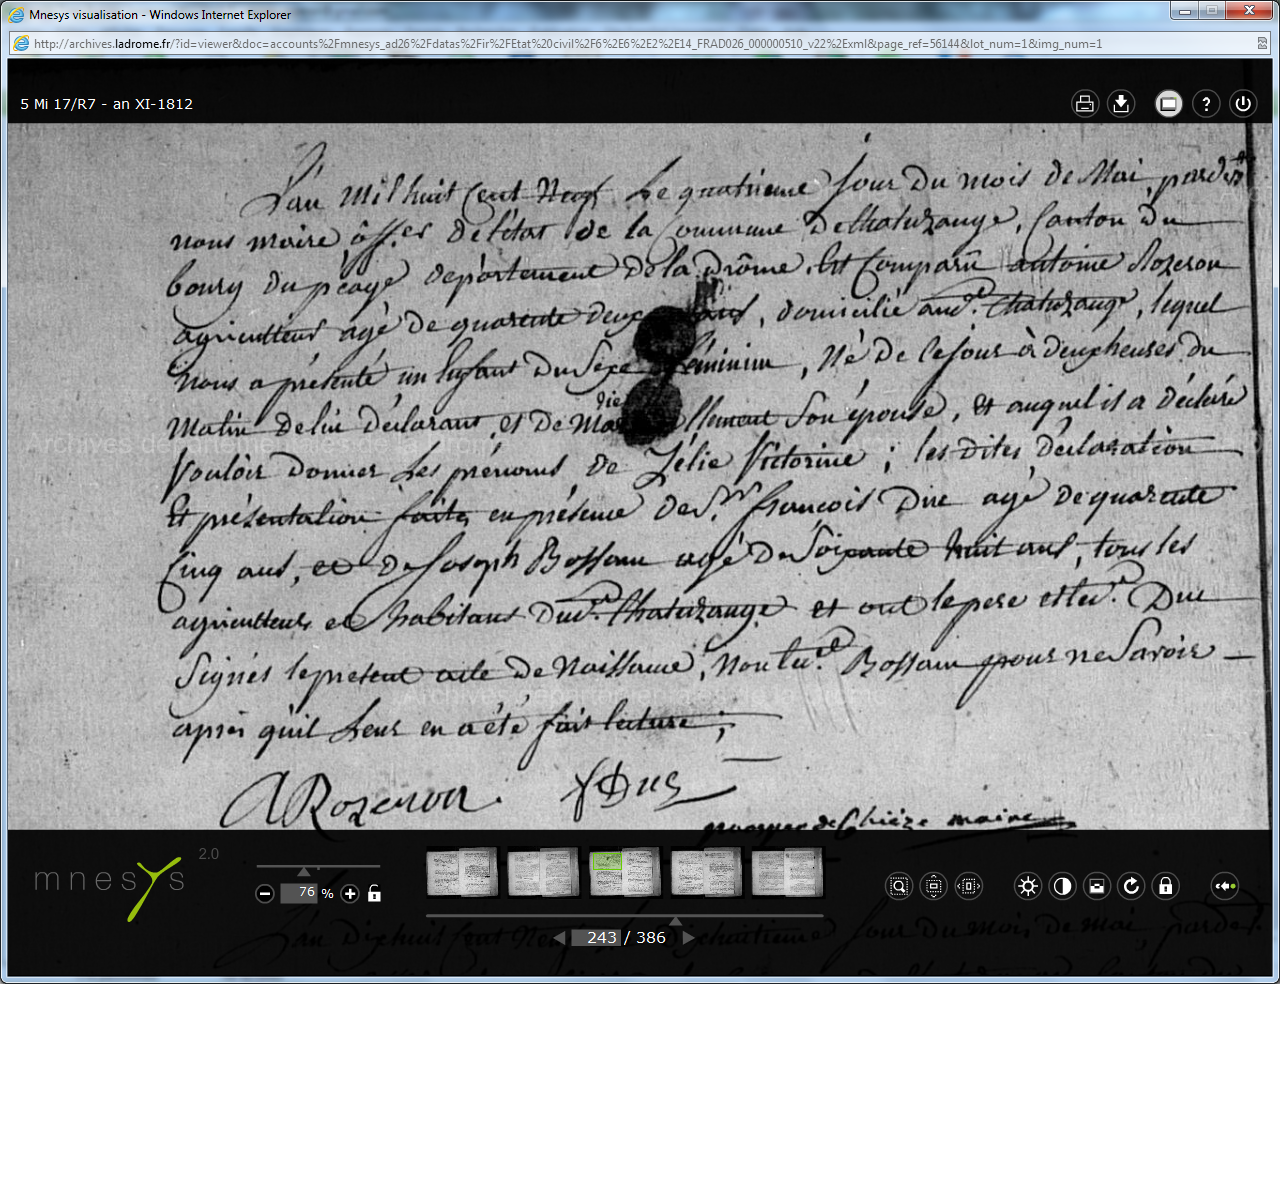 Mnesys visualisation - Windows Internet Explorer
http://archives.ladrome.fr/?id=viewer&doc=accounts%2Fmnesys_ad26%2Fdatas%2Fir%2FEtat%20civil%2F6%2E6%2E2%2E14_FRAD026_000000510_v22%2Exml&page_ref=56144&lot_num=1&img_num=1
5 Mi 17/R7 - an XI-1812
L'an Mil huit Cent Neuf Le quatrieme jour Du mois de Mai, pardt
nous maire offer de l'état de la Commune De Chatuzange, Canton du
bourg du péage département De la Drôme, Est Comparu antoine Rozeron
agriculteur agé de quarente deux ans, domicilié aud. Chatuzange, lequel
Nous a présenté un Enfant Du Sexe féminim, Né De Ce jour à deux heures du
Matin de lui déclarant, et De Ma
die
llement Son épouse, Et auquel il a déclaré
vouloir donner Les prénoms, de Zélie Victorine ; les dites déclaration
Et présentation faite en présence de Sr. françois Duc agé de quarente
Cinq ans, et De Joseph Bossan agé De Soixante huit ans, tous les
agriculteurs et habitans Dud. Chatuzange et ont le pere et led. Duc
Signés le présent acte de Naissance, Non led. Bossan pour ne Savoir
après qu'il Leur en a été fait lecture ;
A Rozeron. f Duc
prosper de Chièze maire
mnesys 2.0
76 %
243 / 386
L'an Dixhuit Cent Neuf Le dixhuitieme Jour Du mois de mai, pardt.